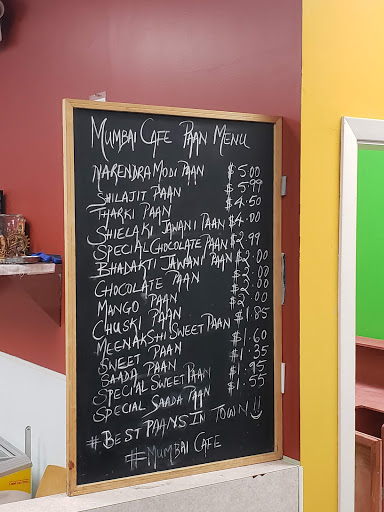 MUMBAI CAFE PAAN MENU
NARENDRA MODI PAAN $5.00
SHILAJIT PAAN $5.99
THARKI PAAN $4.50
SHIELAKI JAWANI PAAN $4.00
SPECIAL CHOCOLATE PAAN $2.99
BHADAKTI JAWANI PAAN $2.00
CHOCOLATE PAAN $2.00
MANGO PAAN $2.00
CHUSKI PAAN $2.00
MEENAKSHI SWEET PAAN $1.85
SWEET PAAN $1.60
SAADA PAAN $1.35
SPECIAL SWEET PAAN $1.95
SPECIAL SAADA PAAN $1.55
#BEST PAANS IN TOWN
#MUMBAI CAFE